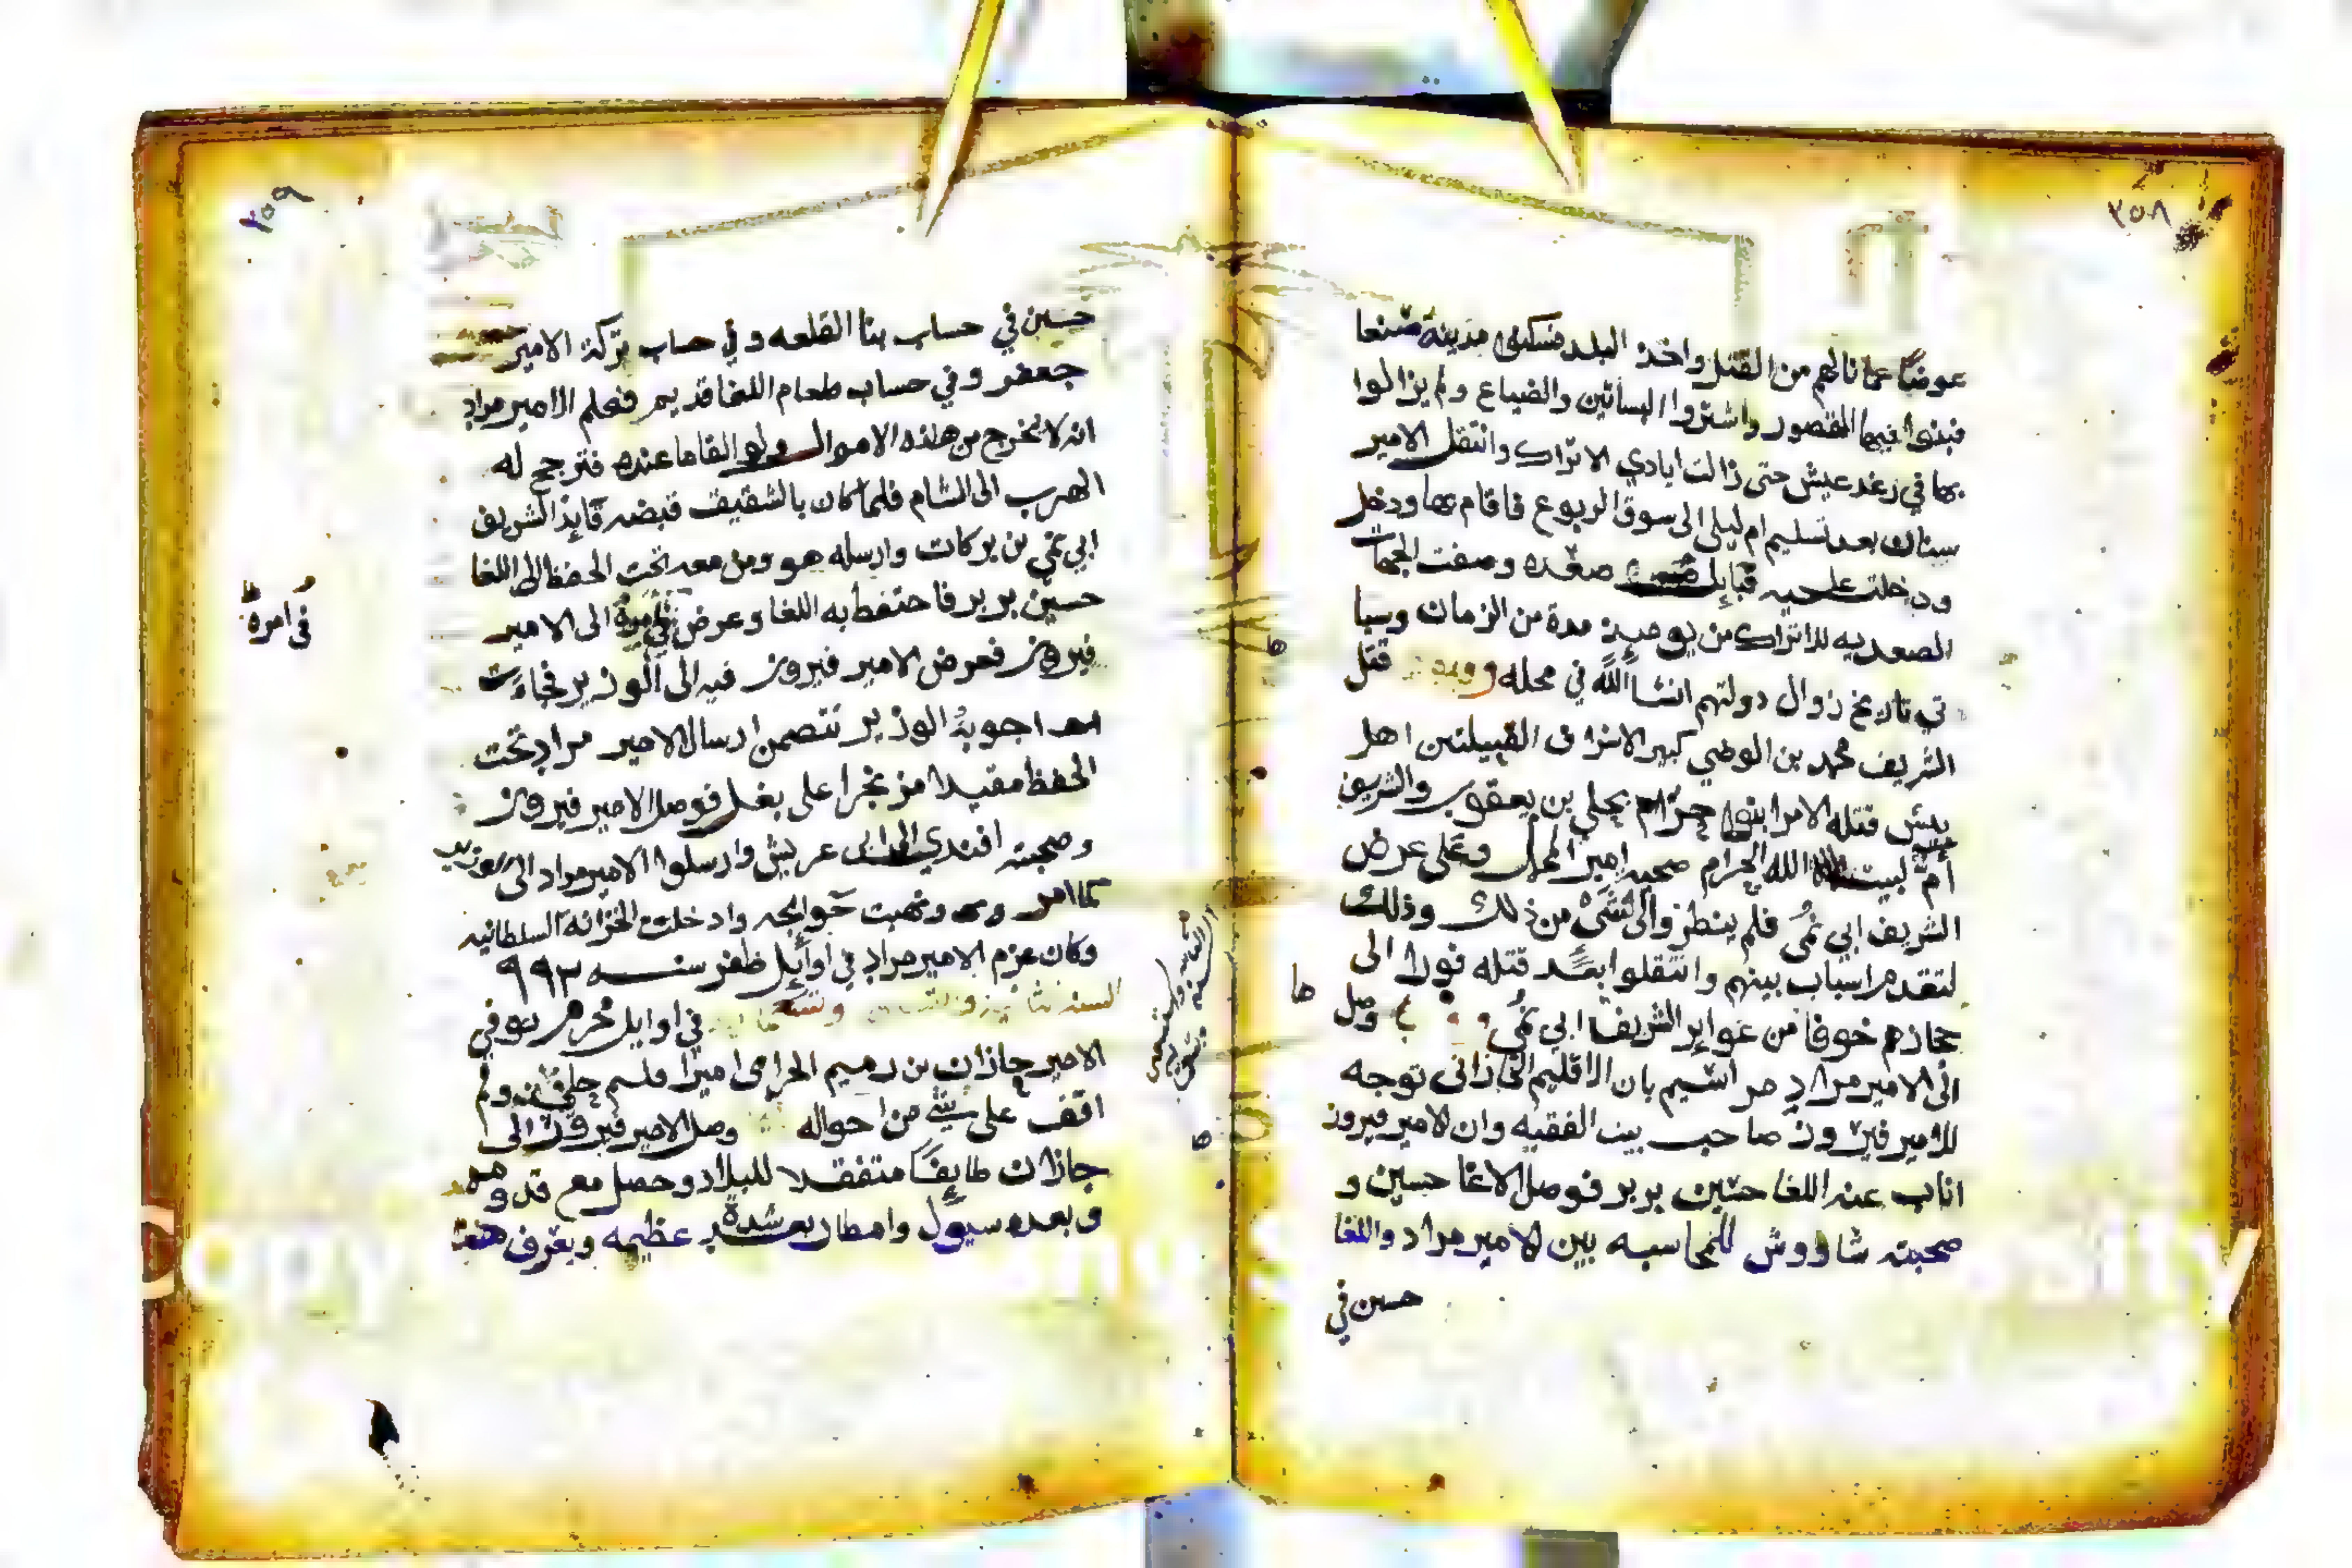 ٢٥٨
عوضًا عما نالهم من القتل واخذ البلد فسكنوا مدينة صنعا
فبنوا فيها القصور واشتروا البساتين والضياع ولم يزالوا
بها في رغد عيش حتى زالت ايادي الاتراك وانتقل الامير
سنان بعد تسليم ام ليلى الى سوق الربوع فاقام بها ودخل
ودخلت عليه قبايل صعده وصفت الجهات
الصعديه للاتراك من يوميذ مدة من الزمان وسيا
تي تاريخ زوال دولتهم انشا الله في محله قتل
الشريف محمد بن الوضي كبير الاشراف القبيلتين اهل
بيش قتله الامرا بنوا حرام بحلي بن يعقوب والشريف
أمّ لبيت الله الحرام صحبه امير المحمل وعلى عرض
الشريف ابي نمي فلم ينظروا الى شي من ذلك وذلك
لتقدم اسباب بينهم وانتقلوا بعد قتله فورا الى
حجازهم خوفا من غواير الشريف ابي نمي وصل
الى الامير مراد مراسيم بان الاقليم الجازاني توجه
للامير فيروز صاحب بيت الفقيه وان الامير فيروز
اناب عنه اللغا حسين بربر فوصل الاغا حسين و
صحبته شاووش للمحاسبه بين الامير مراد واللغا
حسين في
٢٥٩
حسين في حساب بنا القلعه وفي حساب تركة الامير
جعفر وفي حساب طعام اللغا قديم فعلم الامير مراد
انه لا يخرج من هذه الاموال ولو القا ما عنده فترجح له
الهرب الى الشام فلما كان بالشقيف قبضه قايد الشريف
ابي نمي بن بركات وارسله هو ومن معه تحت الحفظ الى اللغا
حسين بربر فاحتفظ به اللغا وعرض في امره الى الامير
فيروز فعرض الامير فيروز فيه الى الوزير فجاءت
اجوبة الوزير تتضمن ارسال الامير مراد تحت
الحفظ مقيدا مزنجرا على بغل فوصل الامير فيروز
وصحبته افندي الى ابي عريش وارسلوا الامير مراد الى الوزير
كما امر ونهبت حوايجه وادخلت الخزانه السلطانيه
وكان عزم الامير مراد في اوايل ظفر سنه ٩٩٢
في اوايل محرم توفي
الامير جازان بن دميم الحرامي اميرا ولم
اقف على شي من احواله وصل الامير فيروز الى
جازان طايفًا متفقدا للبلاد وحصل مع قدومه
وبعده سيول وامطار شدة عظيمه ويعرف
في امره